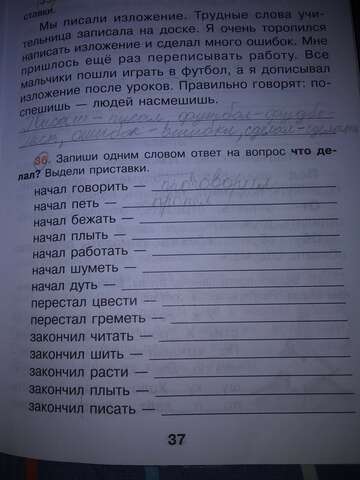 ставки.
Мы писали изложение. Трудные слова учи-
тельница записала на доске. Я очень торопился
написать изложение и сделал много ошибок. Мне
пришлось ещё раз переписывать работу. Все
мальчики пошли играть в футбол, а я дописывал
изложение после уроков. Правильно говорят: по-
спешишь — людей насмешишь.
писал,
36. Запиши одним словом ответ на вопрос что де-
лал? Выдели приставки.
начал говорить —
начал петь — пропел
начал бежать —
начал плыть —
начал работать —
начал шуметь —
начал дуть —
перестал цвести —
перестал греметь —
закончил читать —
закончил шить —
закончил расти —
закончил плыть —
закончил писать —
37